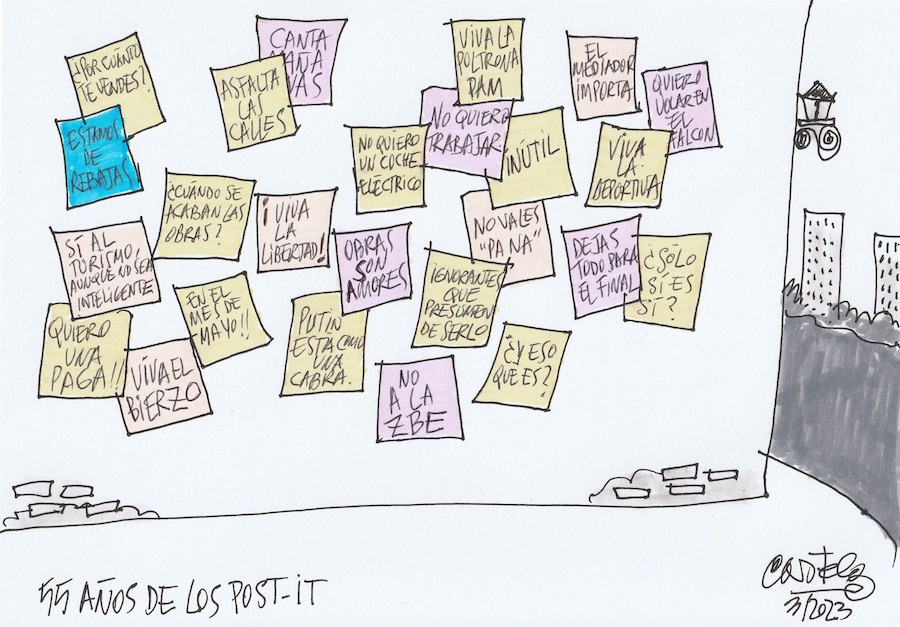 ¿POR CUÁNTO
TE VENDES?
ESTAMOS
DE
REBAJAS
CANTA
MAÑA
NAS
ASFALTA
LAS
CALLES
VIVA LA
POLTRONA
PAM
NO QUIERO
TRABAJAR
EL
MEDIADOR
IMPORTA
QUIERO
VOLAR EN
EL
FALCON
NO QUIERO
UN COCHE
ELÉCTRICO
INÚTIL
VIVA
LA
DEPORTIVA
¿CUÁNDO SE
ACABAN LAS
OBRAS?
¡VIVA
LA
LIBERTAD!
OBRAS
SON
AMORES
NO VALES
"PA NA"
DEJAS
TODO PARA
EL FINAL
¿SÓLO
SÍ ES
SÍ?
SÍ AL
TURISMO,
AUNQUE NO SEA
INTELIGENTE
EN EL
MES DE
MAYO!!
PUTIN
ESTA COMO
UNA
CABRA.
IGNORANTES
QUE
PRESUMEN
DE SERLO
¿Y ESO
QUE ES?
QUIERO
UNA
PAGA!!
VIVA EL
BIERZO
NO
A LA
ZBE
55 AÑOS DE LOS POST-IT
3/2023